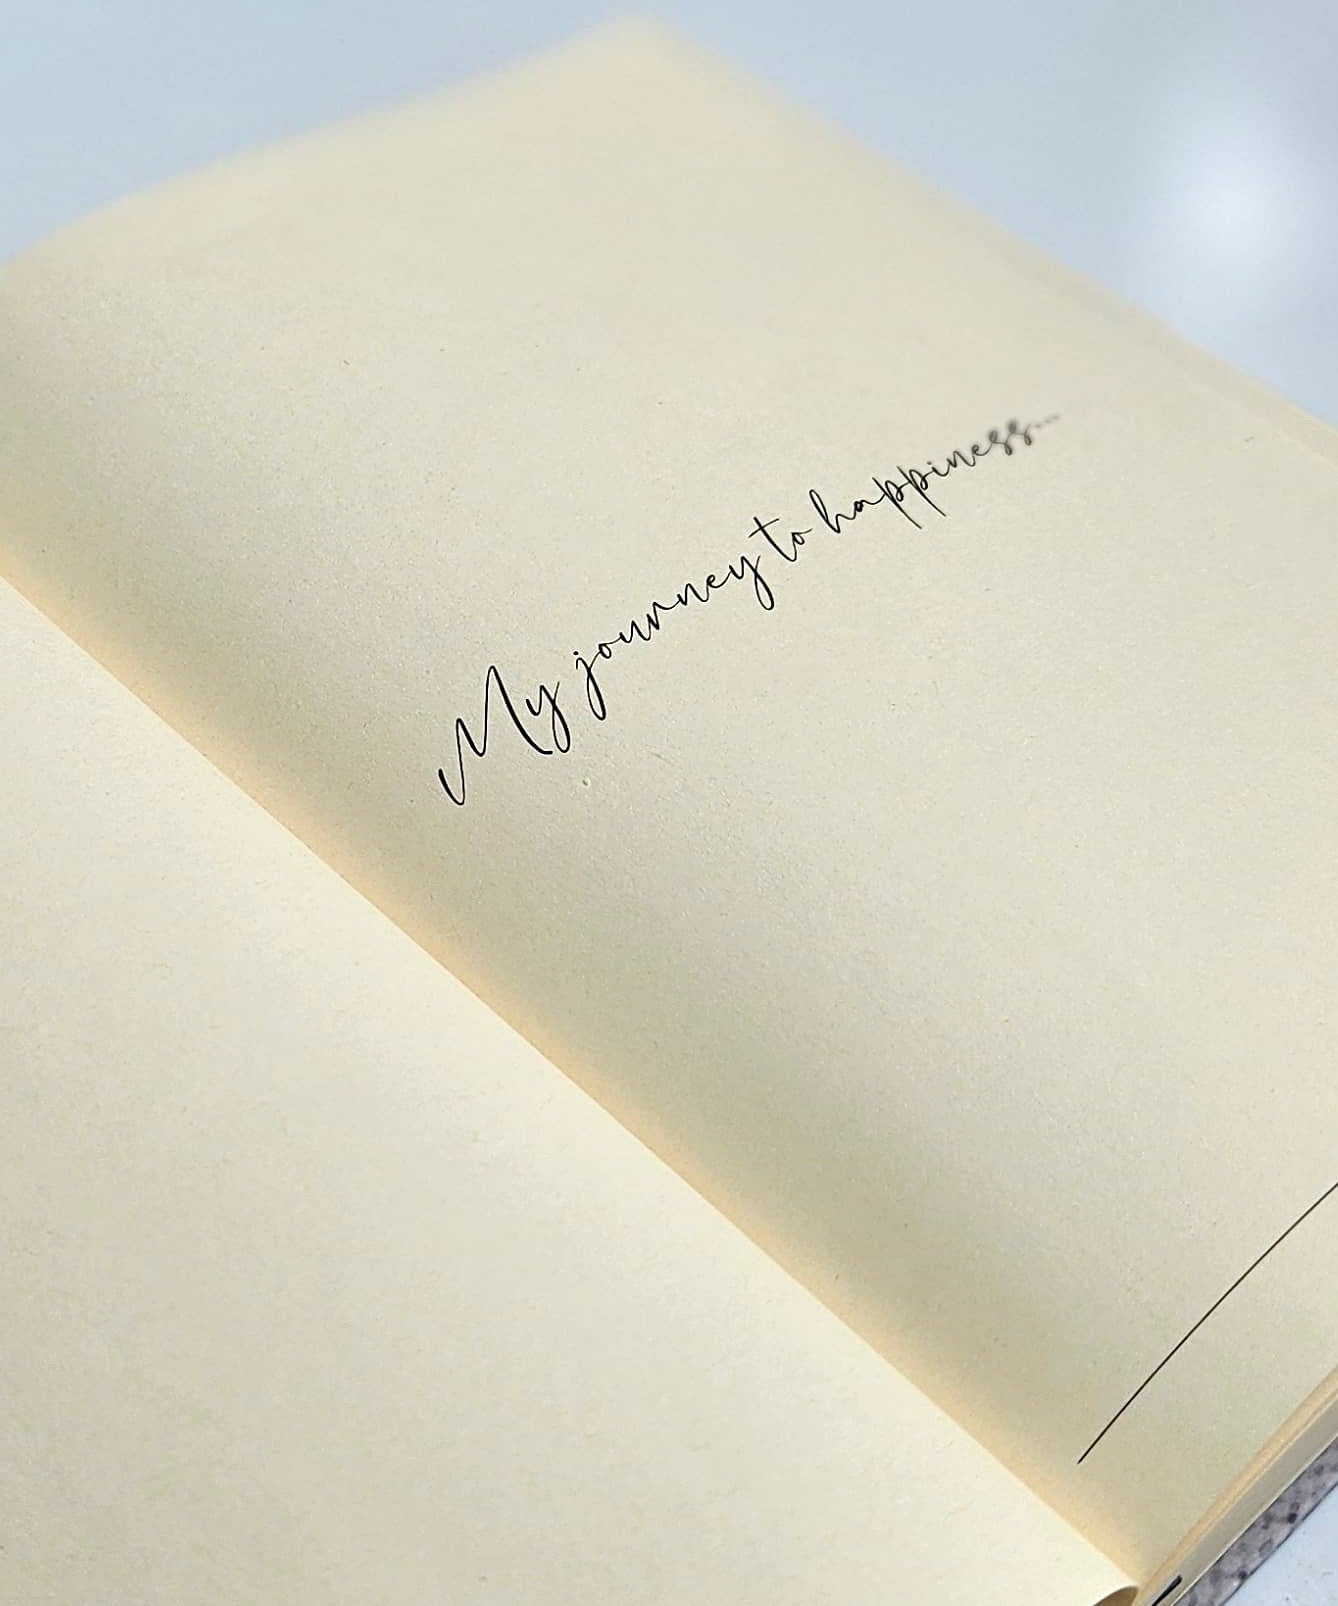 My journey to happiness...